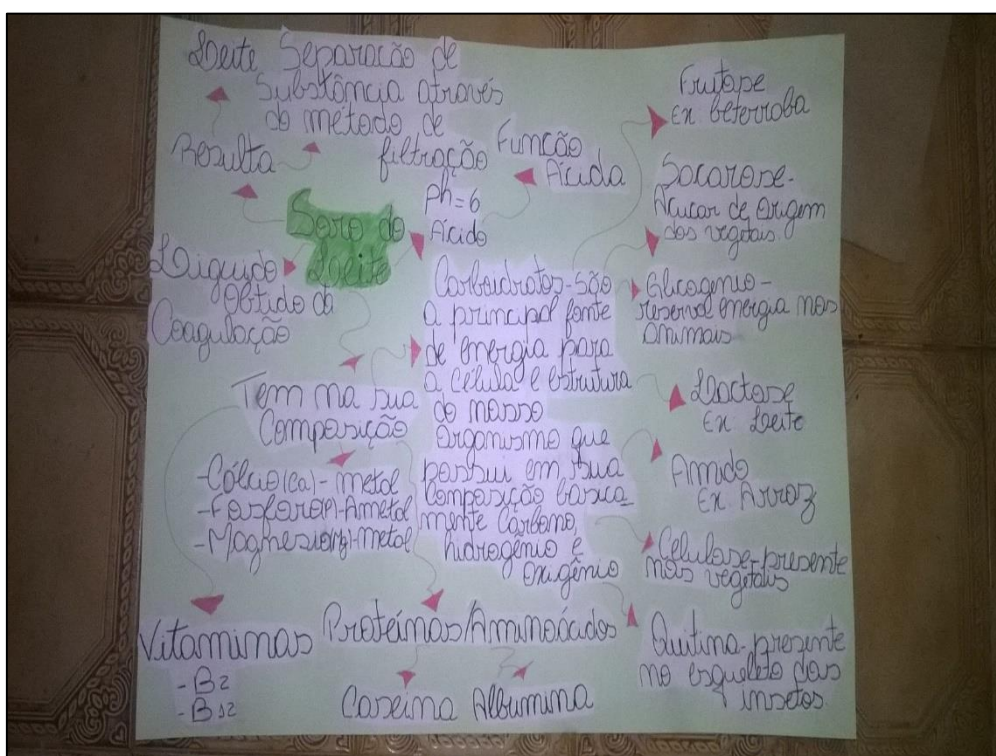 Leite
Separação de
Substância através
do metodo de
filtração
Resulta
Soro do
Leite
Liquido
obtido da
Coagulação
Ph=6
Ácido
Função
Ácida
Tem na sua
Composição
-Cálcio(ca)-metal
-Fosforo(P)-Ametal
-Magnesio(mg)-metal
Vitaminas
-B2
-B12
Proteínas/Aminoácidos
Caseína
Albumina
Carboidratos-São
a principal fonte
de energia para
a célula e estrutura
do nosso
organismo que
possui em sua
Composição basica
mente Carbono,
hidrogênio e
Oxigênio
Frutose
Ex beterraba
Sacarose-
Açucar de Origem
dos vegetais
Glicogenio-
reserva energia nos
animais
Lactose
Ex: Leite
Amido
Ex: Arroz
Celulose-presente
nos vegetais
Quitina-presente
no esqueleto dos
insetos